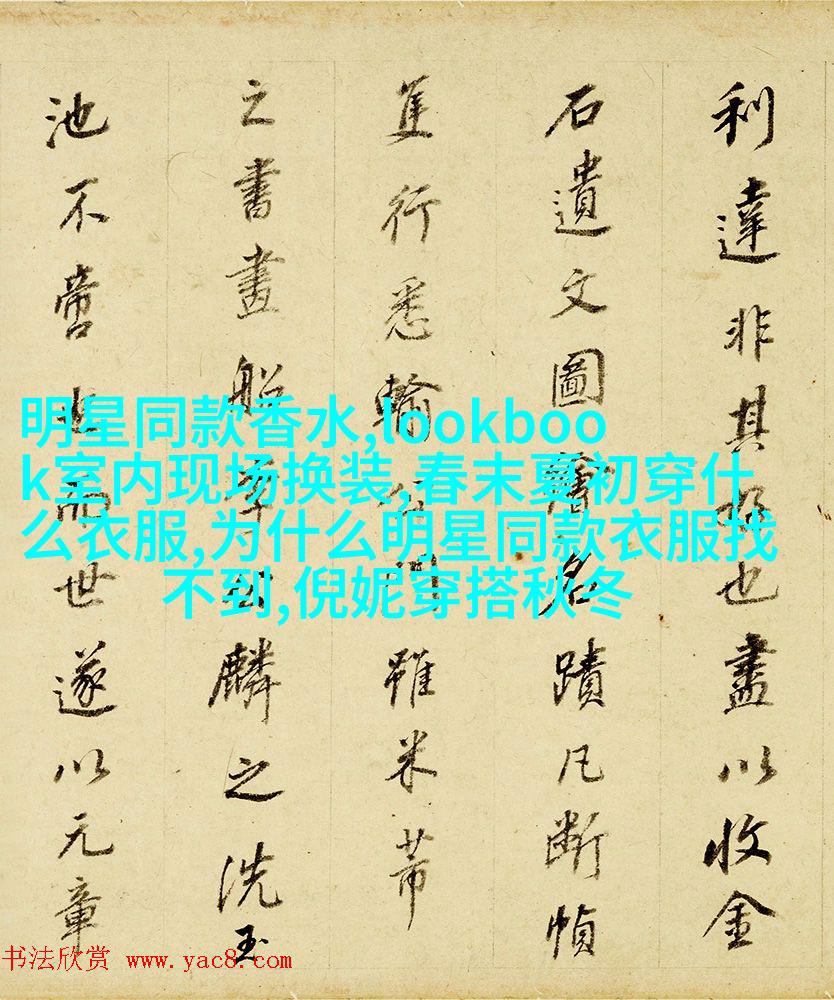 利達非其也盡以收金
石遺文圖名蹟凡斷幀
隻行悉輸雖米芾
之書畫船李公麟之洗玉
池不啻也而世遂以元章
明星同款香水,lookboo
k室内现场换装,春末夏初穿什
么衣服,为什么明星同款衣服找
不到,倪妮穿搭秋冬
书法欣赏 www.yac8.com